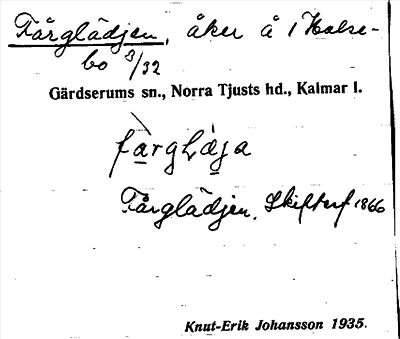 Fårglädjen, åker å 1 Halse-
bo 8/32
Gärdserums sn., Norra Tjusts hd., Kalmar l.
fàrglǽja
Fårglädjen. Skifterf 1866
Knut-Erik Johansson 1935.